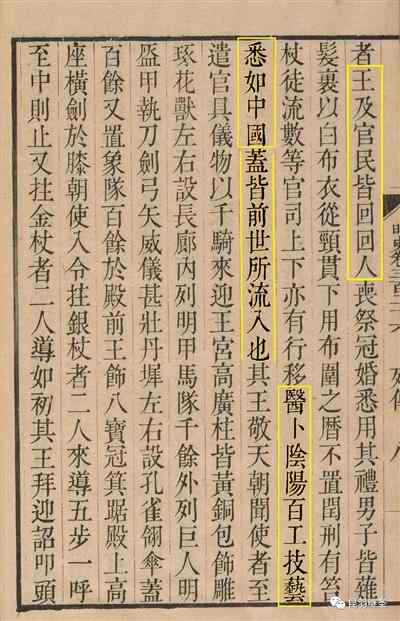 者王及官民皆回回人喪祭冠婚悉用其禮男子皆薙
髮裹以白布衣從頸貫下用布圍之曆不置閏刑有笞
杖徒流數等官司上下亦有行移醫卜陰陽百工技藝
悉如中國蓋皆前世所流入也其王敬天朝聞使者至
遣官具儀物以千騎來迎王宮高廣柱皆黃銅包飾雕
琢花獸左右設長廊內列明甲馬隊千餘外列巨人明
盔甲執刀劍弓矢威儀甚壯丹墀左右設孔雀翎傘蓋
百餘又置象隊百餘於殿前王飾八寶冠箕踞殿上高
座橫劍於膝朝使入令拄銀杖者二人來導五步一呼
至中則止又拄金杖者二人導如初其王拜迎詔叩頭